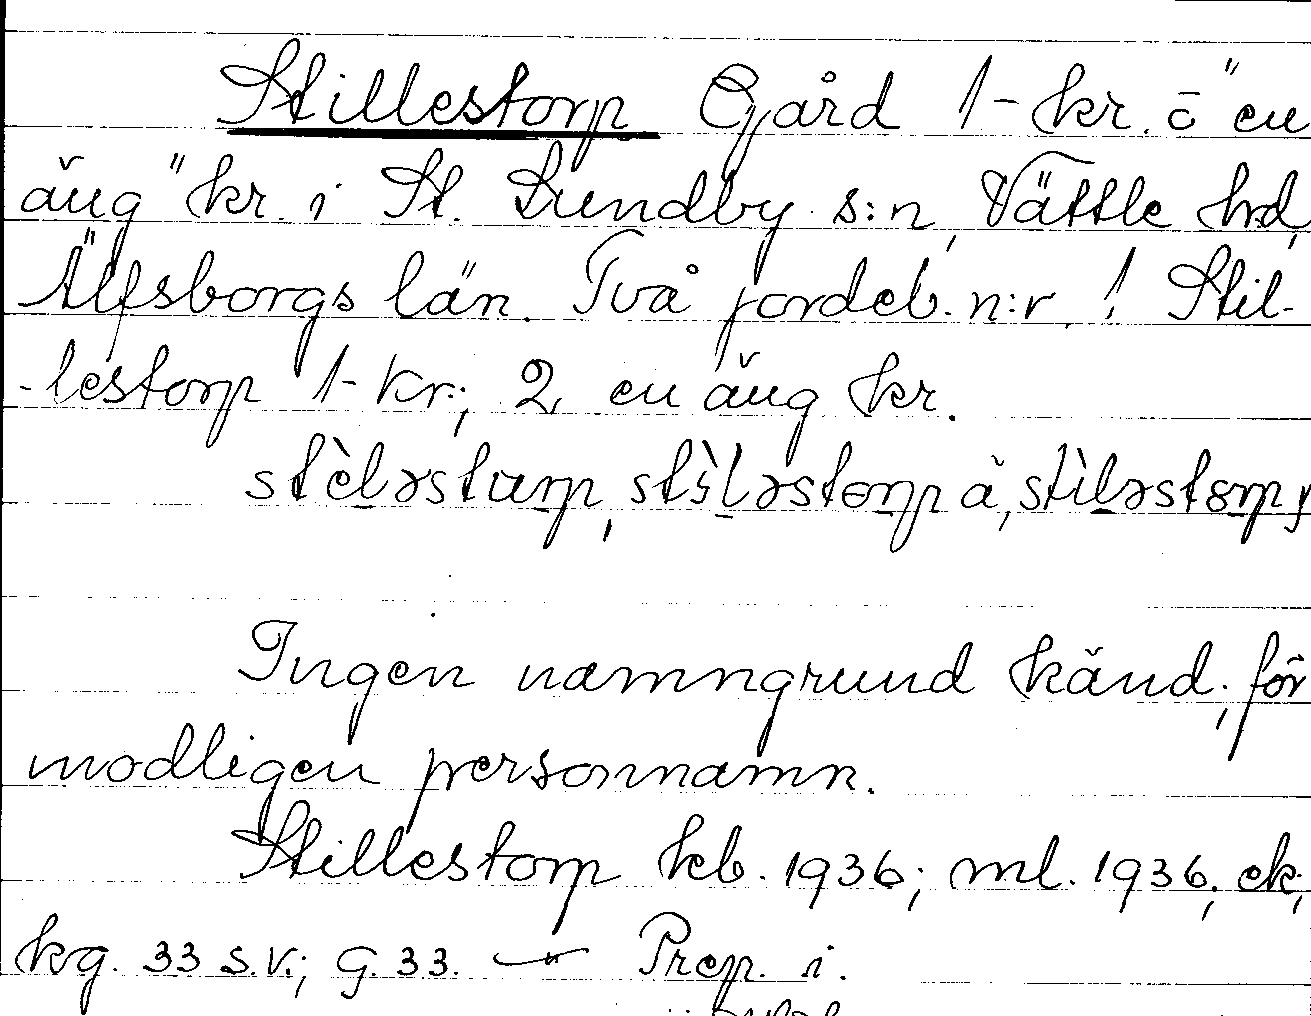 Stillestorp Gård 1-kr. o "en
äng" kr. i St. Lundby s:n, Vättle hd,
Älfsborgs län. Två jordeb. n:r, 1 Stil-
-lestorp 1-kr.; 2, en äng kr.
stèləstʊrp, stìləstorp à, stìləstorp,
Ingen namngrund känd; för
modligen personnamn.
Stillestorp kb. 1936; ml. 1936; ek;
kg. 33 s.v.; G. 33. — Prep. i.